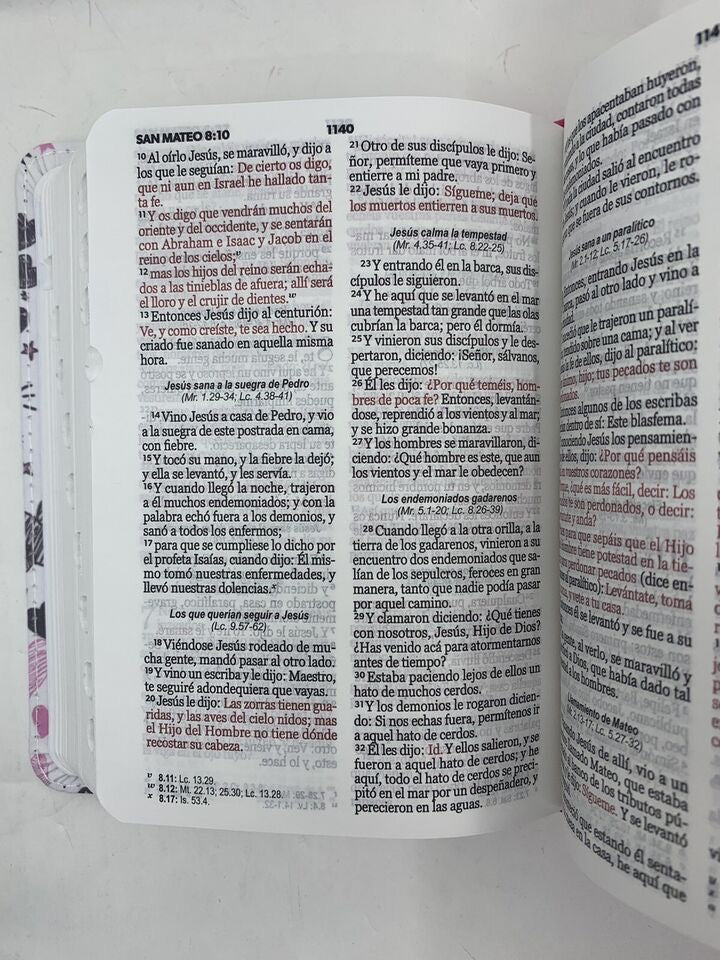 SAN MATEO 8:10
1140
10 Al oírlo Jesús, se maravilló, y dijo a
los que le seguían: De cierto os digo,
que ni aun en Israel he hallado tan-
ta fe.
11 Y os digo que vendrán muchos del
oriente y del occidente, y se sentarán
con Abraham e Isaac y Jacob en el
reino de los cielos;v
12 mas los hijos del reino serán echa-
dos a las tinieblas de afuera; allí será
el lloro y el crujir de dientes.w
13 Entonces Jesús dijo al centurión:
Ve, y como creíste, te sea hecho. Y su
criado fue sanado en aquella misma
hora.
Jesús sana a la suegra de Pedro
(Mr. 1.29-34; Lc. 4.38-41)
14 Vino Jesús a casa de Pedro, y vio
a la suegra de este postrada en cama,
con fiebre.
15 Y tocó su mano, y la fiebre la dejó;
y ella se levantó, y les servía.
16 Y cuando llegó la noche, trajeron
a él muchos endemoniados; y con la
palabra echó fuera a los demonios, y
sanó a todos los enfermos;
17 para que se cumpliese lo dicho por
el profeta Isaías, cuando dijo: Él mis-
mo tomó nuestras enfermedades, y
llevó nuestras dolencias.x
Los que querían seguir a Jesús
(Lc. 9.57-62)
18 Viéndose Jesús rodeado de mu-
cha gente, mandó pasar al otro lado.
19 Y vino un escriba y le dijo: Maestro,
te seguiré adondequiera que vayas.
20 Jesús le dijo: Las zorras tienen gua-
ridas, y las aves del cielo nidos; mas
el Hijo del Hombre no tiene dónde
recostar su cabeza.
v 8.11: Lc. 13.29.
w 8.12: Mt. 22.13; 25.30; Lc. 13.28.
x 8.17: Is. 53.4.
21 Otro de sus discípulos le dijo: Se-
ñor, permíteme que vaya primero y
entierre a mi padre.
22 Jesús le dijo: Sígueme; deja que
los muertos entierren a sus muertos.
Jesús calma la tempestad
(Mr. 4.35-41; Lc. 8.22-25)
23 Y entrando él en la barca, sus dis-
cípulos le siguieron.
24 Y he aquí que se levantó en el mar
una tempestad tan grande que las olas
cubrían la barca; pero él dormía.
25 Y vinieron sus discípulos y le des-
pertaron, diciendo: ¡Señor, sálvanos,
que perecemos!
26 Él les dijo: ¿Por qué teméis, hom-
bres de poca fe? Entonces, levantán-
dose, reprendió a los vientos y al mar;
y se hizo grande bonanza.
27 Y los hombres se maravillaron, di-
ciendo: ¿Qué hombre es este, que aun
los vientos y el mar le obedecen?
Los endemoniados gadarenos
(Mr. 5.1-20; Lc. 8.26-39)
28 Cuando llegó a la otra orilla, a la
tierra de los gadarenos, vinieron a su
encuentro dos endemoniados que sa-
lían de los sepulcros, feroces en gran
manera, tanto que nadie podía pasar
por aquel camino.
29 Y clamaron diciendo: ¿Qué tienes
con nosotros, Jesús, Hijo de Dios?
¿Has venido acá para atormentarnos
antes de tiempo?
30 Estaba paciendo lejos de ellos un
hato de muchos cerdos.
31 Y los demonios le rogaron dicien-
do: Si nos echas fuera, permítenos ir
a aquel hato de cerdos.
32 Él les dijo: Id. Y ellos salieron, y se
fueron a aquel hato de cerdos; y he
aquí, todo el hato de cerdos se preci-
pitó en el mar por un despeñadero, y
perecieron en las aguas.
los apacentaban huyeron,
a la ciudad, contaron todas
y lo que había pasado con
la ciudad salió al encuentro
y cuando le vieron, le ro-
que se fuera de sus contornos.
Jesús sana a un paralítico
(Mr. 2.1-12; Lc. 5.17-26)
Entonces, entrando Jesús en la
pasó al otro lado y vino a
que le trajeron un paralí-
tendido sobre una cama; y al ver
la fe de ellos, dijo al paralítico:
hijo; tus pecados te son
algunos de los escribas
dentro de sí: Este blasfema.
Jesús los pensamien-
ellos, dijo: ¿Por qué pensáis
vuestros corazones?
qué es más fácil, decir: Los
te son perdonados, o decir:
y anda?
para que sepáis que el Hijo
Hombre tiene potestad en la tie-
perdonar pecados (dice en-
al paralítico): Levántate, toma
y vete a tu casa.
él se levantó y se fue a su
al verlo, se maravilló y
a Dios, que había dado tal
a los hombres.
Llamamiento de Mateo
Lc. 5.27-32)
Jesús de allí, vio a un
llamado Mateo, que estaba
al banco de los tributos pú-
dijo: Sígueme. Y se levantó
que estando él senta-
en la casa, he aquí que